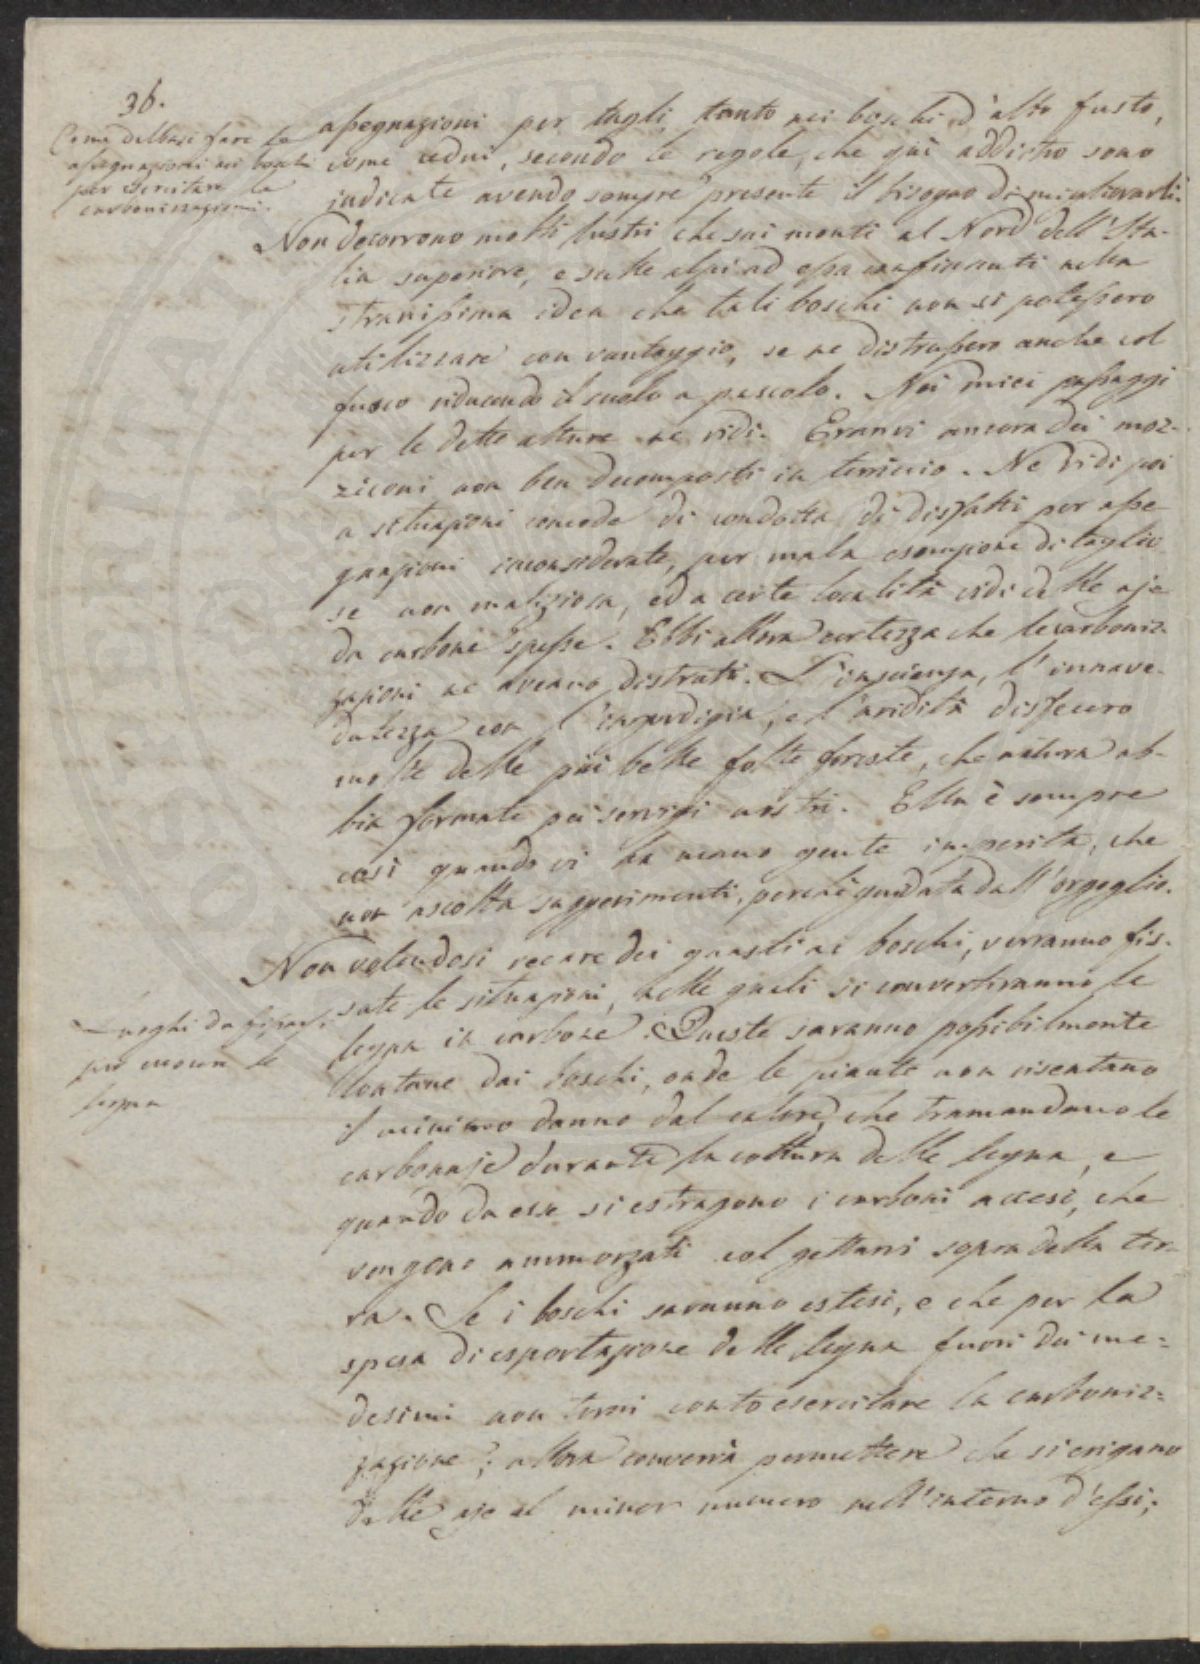 36.
Come debbasi fare le
assegnazioni nei boschi
per esercitare le
carbonizzazioni.
assegnazioni per tagli tanto nei boschi d'alto fusto,
come cedui, secondo le regole, che quì addietro sono
indicate avendo sempre presente il bisogno di migliorarli.
Non decorrono molti lustri che sui monti al Nord dell'Ita-
lia superiore, e sulle alpi ad essa confinanti nella
stranissima idea che tali boschi non si potessero
utilizzare con vantaggio, se ne distrussero anche col
fuoco riducendo il suolo a pascolo. Nei miei passaggi
per le dette alture ne vidi. Eranvi ancora dei moz-
ziconi non ben decomposti in terriccio. Ne vidi poi
a situazioni comode di condotta di disfatti per asse-
gnazioni inconsiderate, per mala esecuzione di taglio
se non maliziosa, ed a certe località vidi delle aje
da carbone spesse. Ebbi allora certezza che le carboniz-
zazioni ne aveano distrutti. L'inscienza, l'innave-
dutezza con l'ingordigia, e l'aridità disfecero
molte delle più belle folte foreste, che natura ab-
bia formate pei servigi nostri. Ella è sempre
così quando vi ha mano gente imperita, che
non ascolta suggerimenti, perchè guidata dall'orgoglio.
Non volendosi recare dei guasti ai boschi, verranno fis-
Luoghi da fissarsi
per cuocer le
legna
sate le situazioni, nelle quali si convertiranno le
legna in carbone. Queste saranno possibilmente
lontane dai boschi, onde le piante non risentano
il minimo danno dal calore, che tramandano le
carbonaje durante la cottura delle legna, e
quando da esse si estragono i carboni accesi, che
vengono ammorzati col gettarvi sopra della ter-
ra. Se i boschi saranno estesi, e che per la
spesa di esportazione delle legna fuori dai me=
desimi non torni conto esercitare la carboniz=
zazione; allora converrà permettere che si erigano
delle aje al minor numero nell'interno d'essi;